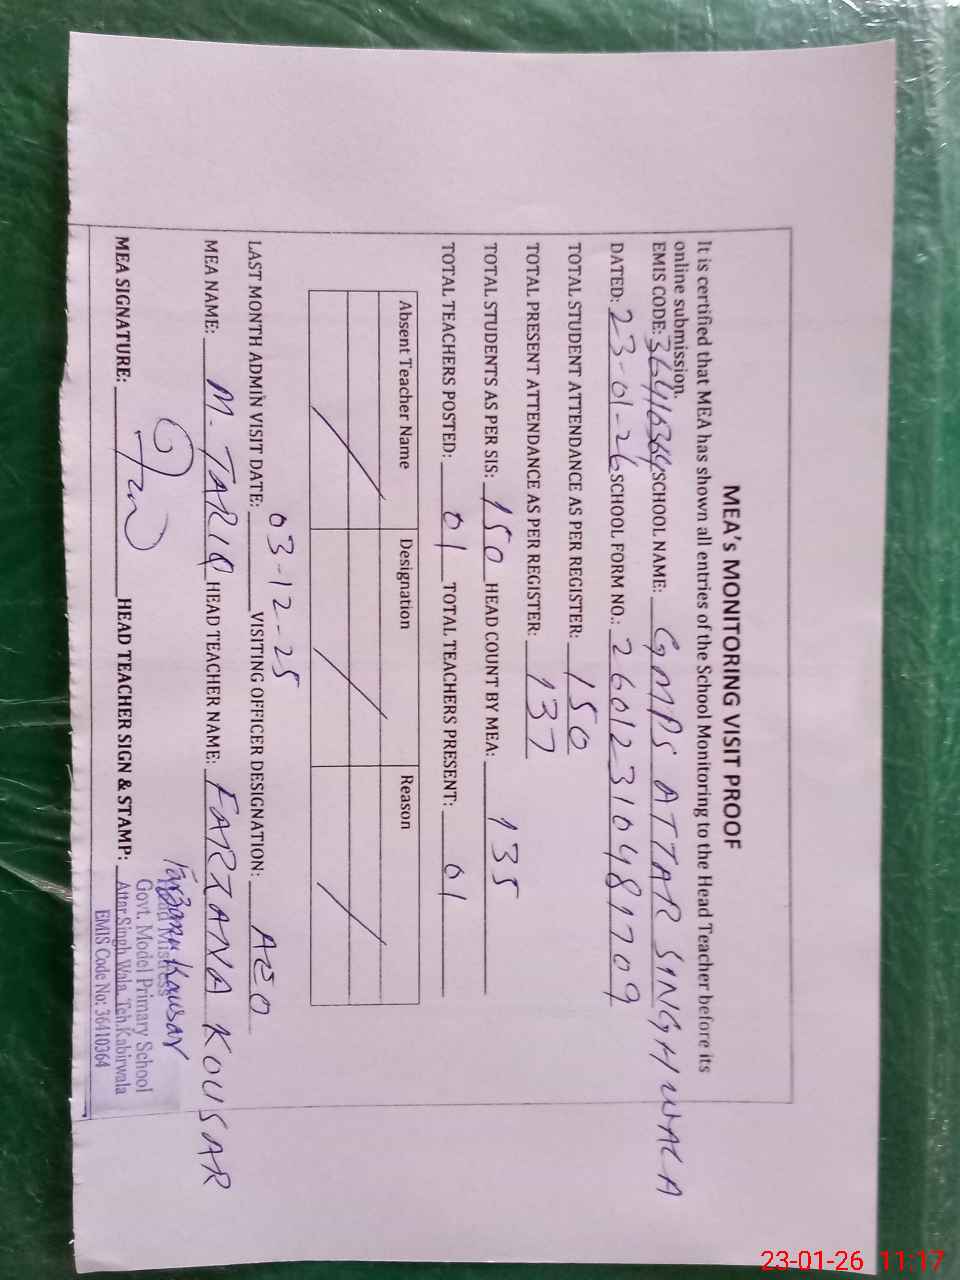 MEA's MONITORING VISIT PROOF
It is certified that MEA has shown all entries of the School Monitoring to the Head Teacher before its
online submission.
EMIS CODE: 36410364 SCHOOL NAME: GMPS ATTAR SINGH WALA
DATED: 23-01-26 SCHOOL FORM NO.: 26012310481709
TOTAL STUDENT ATTENDANCE AS PER REGISTER: 150
TOTAL PRESENT ATTENDANCE AS PER REGISTER: 137
TOTAL STUDENTS AS PER SIS: 150 HEAD COUNT BY MEA: 135
TOTAL TEACHERS POSTED: 01 TOTAL TEACHERS PRESENT: 01
Absent Teacher Name Designation Reason
LAST MONTH ADMIN VISIT DATE: 03-12-25 VISITING OFFICER DESIGNATION: AEO
MEA NAME: M. TARIQ HEAD TEACHER NAME: FARZANA KOUSAR
MEA SIGNATURE: HEAD TEACHER SIGN & STAMP:
Farzana Kousar
Head Mistress
Govt. Model Primary School
Attar Singh Wala, Teh. Kabirwala
EMIS Code No: 36410364
23-01-26 11:17